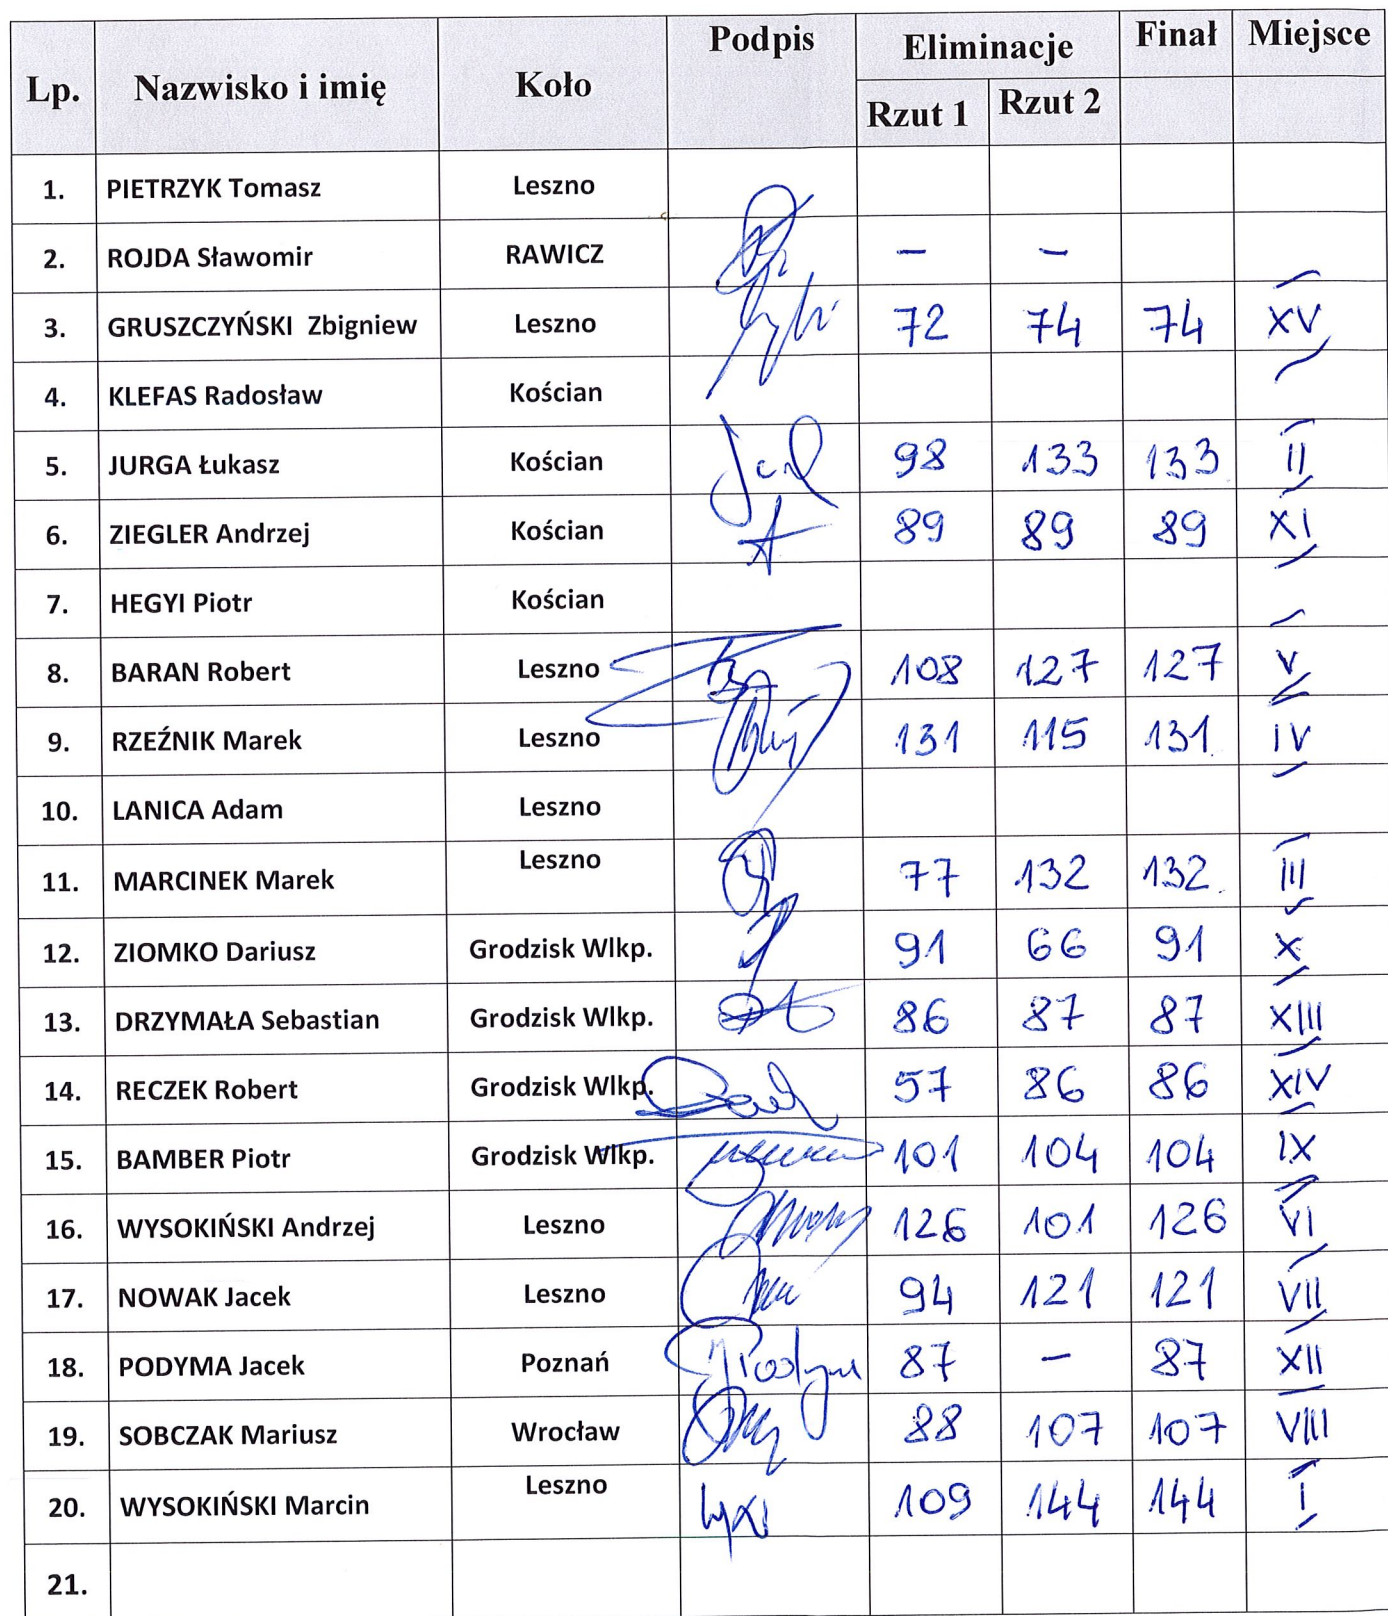 Lp. Nazwisko i imię Koło Podpis Eliminacje Finał Miejsce
Rzut 1 Rzut 2
1. PIETRZYK Tomasz Leszno
2. ROJDA Sławomir RAWICZ – –
3. GRUSZCZYŃSKI Zbigniew Leszno 72 74 74 XV
4. KLEFAS Radosław Kościan
5. JURGA Łukasz Kościan 98 133 133 II
6. ZIEGLER Andrzej Kościan 89 89 89 XI
7. HEGYI Piotr Kościan
8. BARAN Robert Leszno 108 127 127 V
9. RZEŹNIK Marek Leszno 131 115 131 IV
10. LANICA Adam Leszno
11. MARCINEK Marek Leszno 77 132 132 III
12. ZIOMKO Dariusz Grodzisk Wlkp. 91 66 91 X
13. DRZYMAŁA Sebastian Grodzisk Wlkp. 86 87 87 XIII
14. RECZEK Robert Grodzisk Wlkp. 57 86 86 XIV
15. BAMBER Piotr Grodzisk Wlkp. 101 104 104 IX
16. WYSOKIŃSKI Andrzej Leszno 126 101 126 VI
17. NOWAK Jacek Leszno 94 121 121 VII
18. PODYMA Jacek Poznań 87 – 87 XII
19. SOBCZAK Mariusz Wrocław 88 107 107 VIII
20. WYSOKIŃSKI Marcin Leszno 109 144 144 I
21.